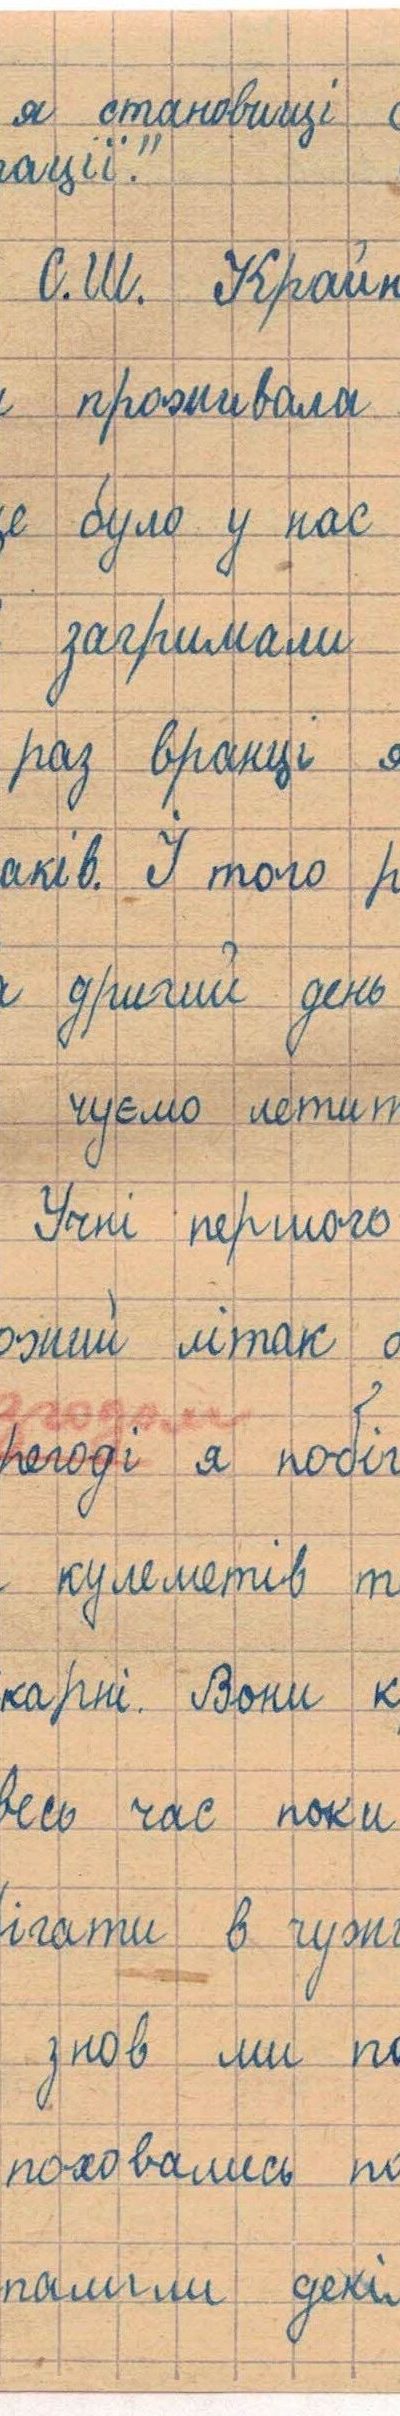 я становищі
ації."
С.Ш. Крайн
проживала
це було у нас
загримали
раз вранці я
аків. Й того р
дригий день
чуємо летит
Учні першого
ожий літак
годом
регоді я побіг
кулеметів т
карні. Вони к
весь час поки
ігати в чужі
знов ми по
поховались по
палили декіл